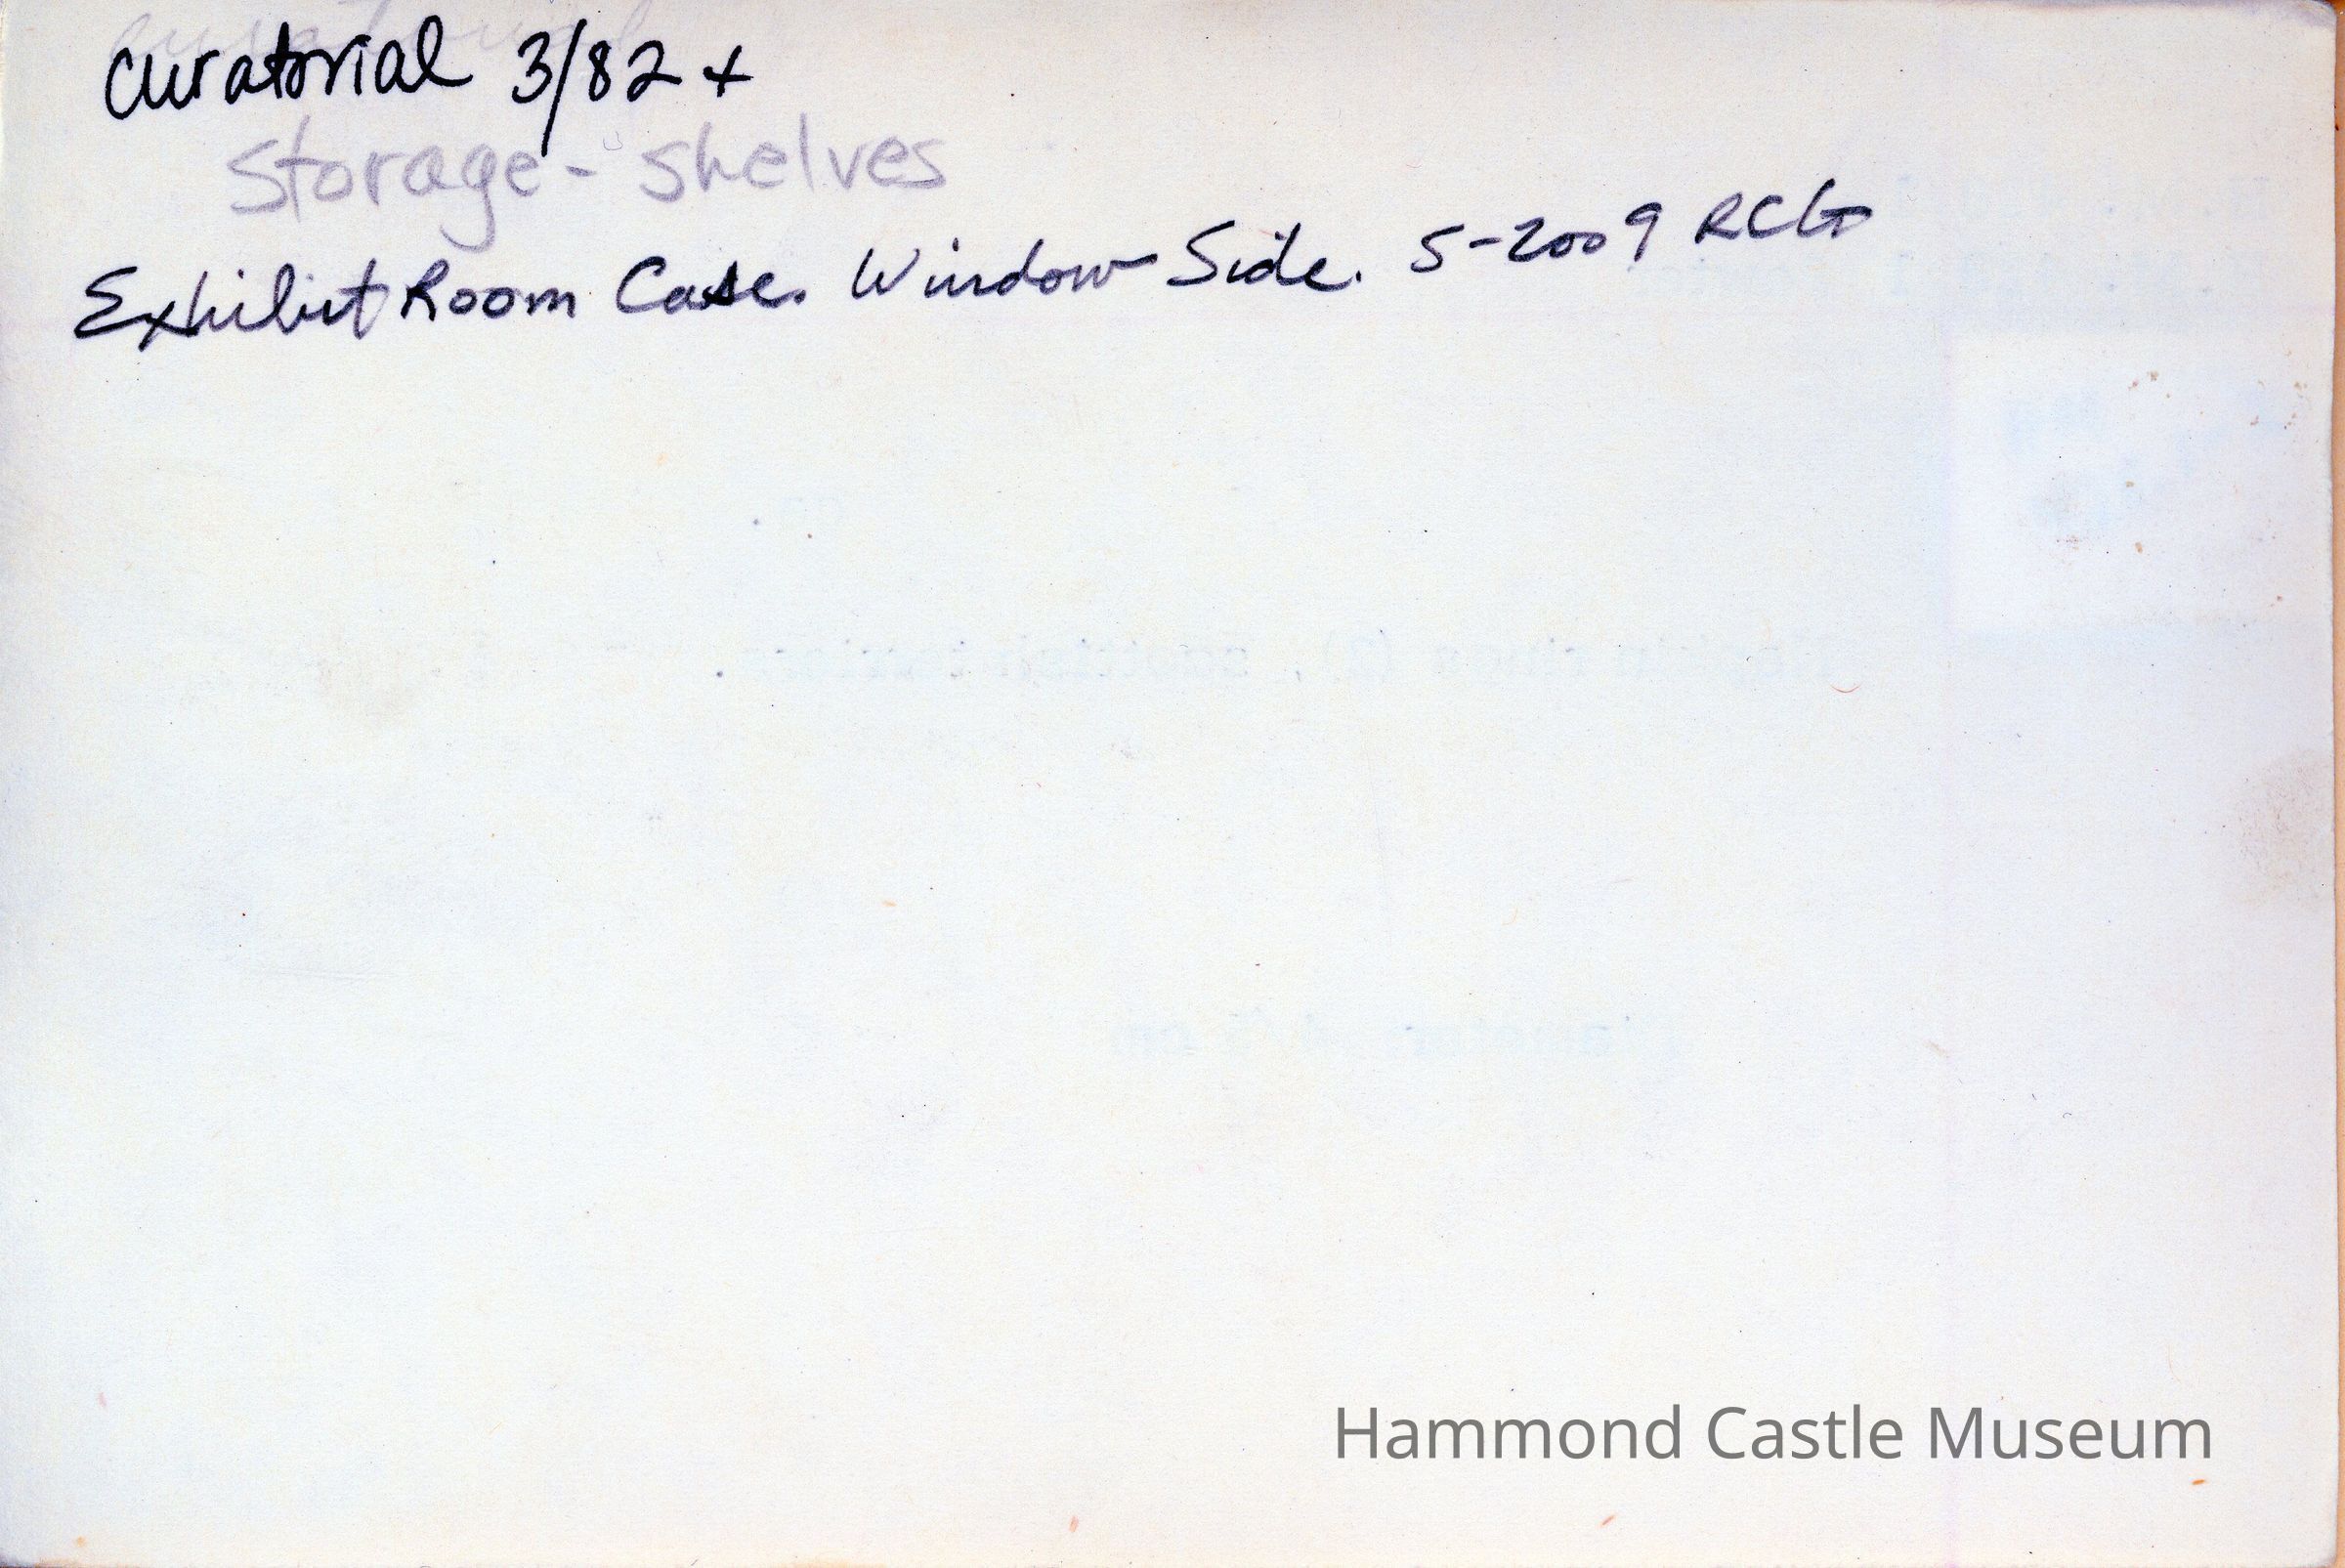 curatorial 3/82 +
storage - shelves
Exhibit Room Case. Window Side. 5-2009 RCG
Hammond Castle Museum